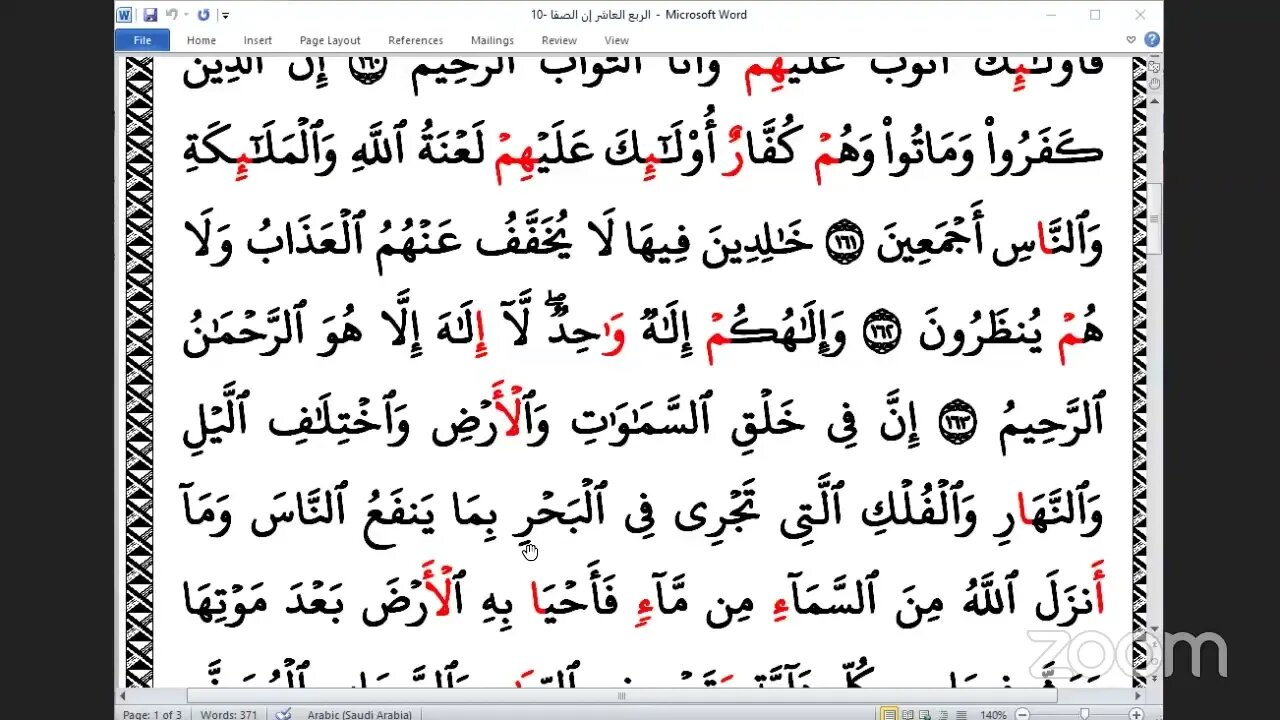 الربع العاشر إن الصفا -10 - Microsoft Word
File Home Insert Page Layout References Mailings Review View
فَأُو۟لَـٰٓئِكَ أَتُوبُ عَلَيْهِمْ وَأَنَا ٱلتَّوَّابُ ٱلرَّحِيمُ ١٦٠ إِنَّ ٱلَّذِينَ
كَفَرُوا۟ وَمَاتُوا۟ وَهُمْ كُفَّارٌ أُو۟لَـٰٓئِكَ عَلَيْهِمْ لَعْنَةُ ٱللَّهِ وَٱلْمَلَـٰٓئِكَةِ
وَٱلنَّاسِ أَجْمَعِينَ ١٦١ خَـٰلِدِينَ فِيهَا لَا يُخَفَّفُ عَنْهُمُ ٱلْعَذَابُ وَلَا
هُمْ يُنظَرُونَ ١٦٢ وَإِلَـٰهُكُمْ إِلَـٰهٌ وَٰحِدٌ ۖ لَّآ إِلَـٰهَ إِلَّا هُوَ ٱلرَّحْمَـٰنُ
ٱلرَّحِيمُ ١٦٣ إِنَّ فِى خَلْقِ ٱلسَّمَـٰوَٰتِ وَٱلْأَرْضِ وَٱخْتِلَـٰفِ ٱلَّيْلِ
وَٱلنَّهَارِ وَٱلْفُلْكِ ٱلَّتِى تَجْرِى فِى ٱلْبَحْرِ بِمَا يَنفَعُ ٱلنَّاسَ وَمَآ
أَنزَلَ ٱللَّهُ مِنَ ٱلسَّمَآءِ مِن مَّآءٍ فَأَحْيَا بِهِ ٱلْأَرْضَ بَعْدَ مَوْتِهَا
zoom
Page: 1 of 3 Words: 371 Arabic (Saudi Arabia) 140%